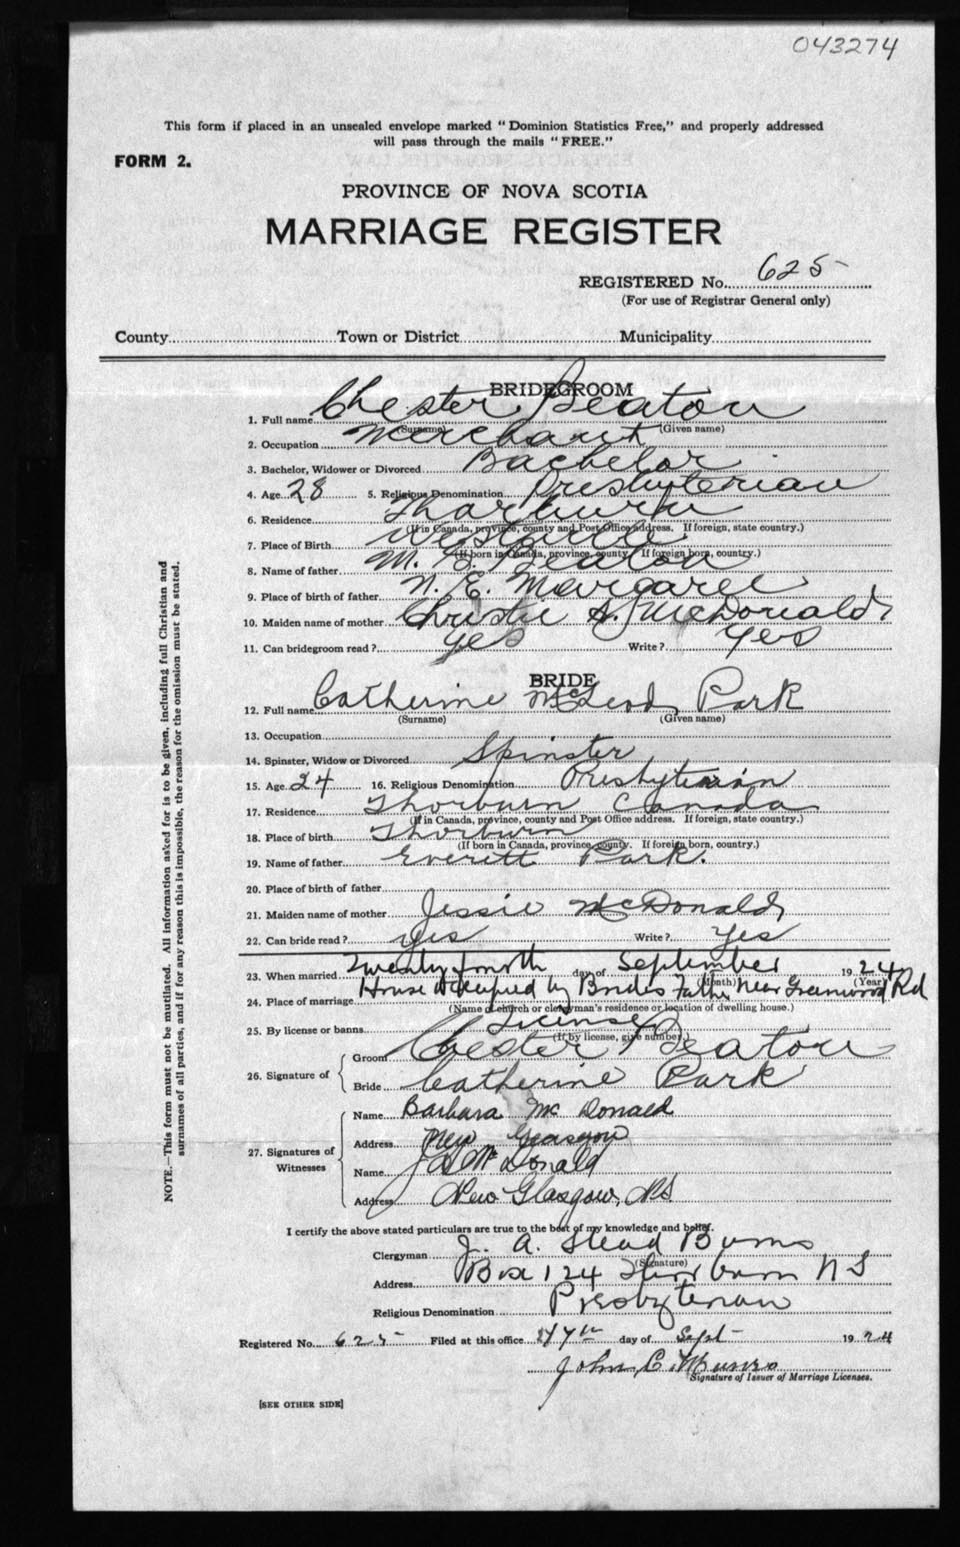 043274
This form if placed in an unsealed envelope marked "Dominion Statistics Free," and properly addressed
will pass through the mails "FREE."
FORM 2.
PROVINCE OF NOVA SCOTIA
MARRIAGE REGISTER
REGISTERED No. 625
(For use of Registrar General only)
County Town or District Municipality
BRIDEGROOM
1. Full name Chester Beaton
(Surname) (Given name)
2. Occupation Merchant
3. Bachelor, Widower or Divorced Bachelor
4. Age 28 5. Religious Denomination Presbyterian
6. Residence Thorburn
(If in Canada, province, county and Post Office address. If foreign, state country.)
7. Place of Birth Westville
(If born in Canada, province, county. If foreign born, country.)
8. Name of father M. Beaton
9. Place of birth of father N. E. Margaree
10. Maiden name of mother Christie A. McDonald
11. Can bridegroom read? Yes Write? Yes
BRIDE
12. Full name Catherine McLeod Park
(Surname) (Given name)
13. Occupation
14. Spinster, Widow or Divorced Spinster
15. Age 24 16. Religious Denomination Presbyterian
17. Residence Thorburn Canada
(If in Canada, province, county and Post Office address. If foreign, state country.)
18. Place of birth Thorburn
(If born in Canada, province, county. If foreign born, country.)
19. Name of father Everett Park.
20. Place of birth of father
21. Maiden name of mother Jessie McDonald
22. Can bride read? Yes Write? Yes
23. When married Twenty fourth day of September 1924
(Month) (Year)
24. Place of marriage House Occupied by Brides Father Near Greenwood Rd
(Name of church or clergyman's residence or location of dwelling house.)
25. By license or banns License
(If by license, give number.)
26. Signature of Groom Chester Beaton
Bride Catherine Park
27. Signatures of Witnesses
Name Barbara McDonald
Address New Glasgow
Name McDonald
Address New Glasgow, NS
I certify the above stated particulars are true to the best of my knowledge and belief.
Clergyman J. A. Stead Burns
(Signature)
Address Box 124 Thorburn NS
Religious Denomination Presbyterian
Registered No. 625 Filed at this office day of Sept 1924
John C. Munro
Signature of Issuer of Marriage Licenses.
[SEE OTHER SIDE]
NOTE.—This form must not be mutilated. All information asked for is to be given, including full Christian and
surnames of all parties, and if for any reason this is impossible, the reason for the omission must be stated.